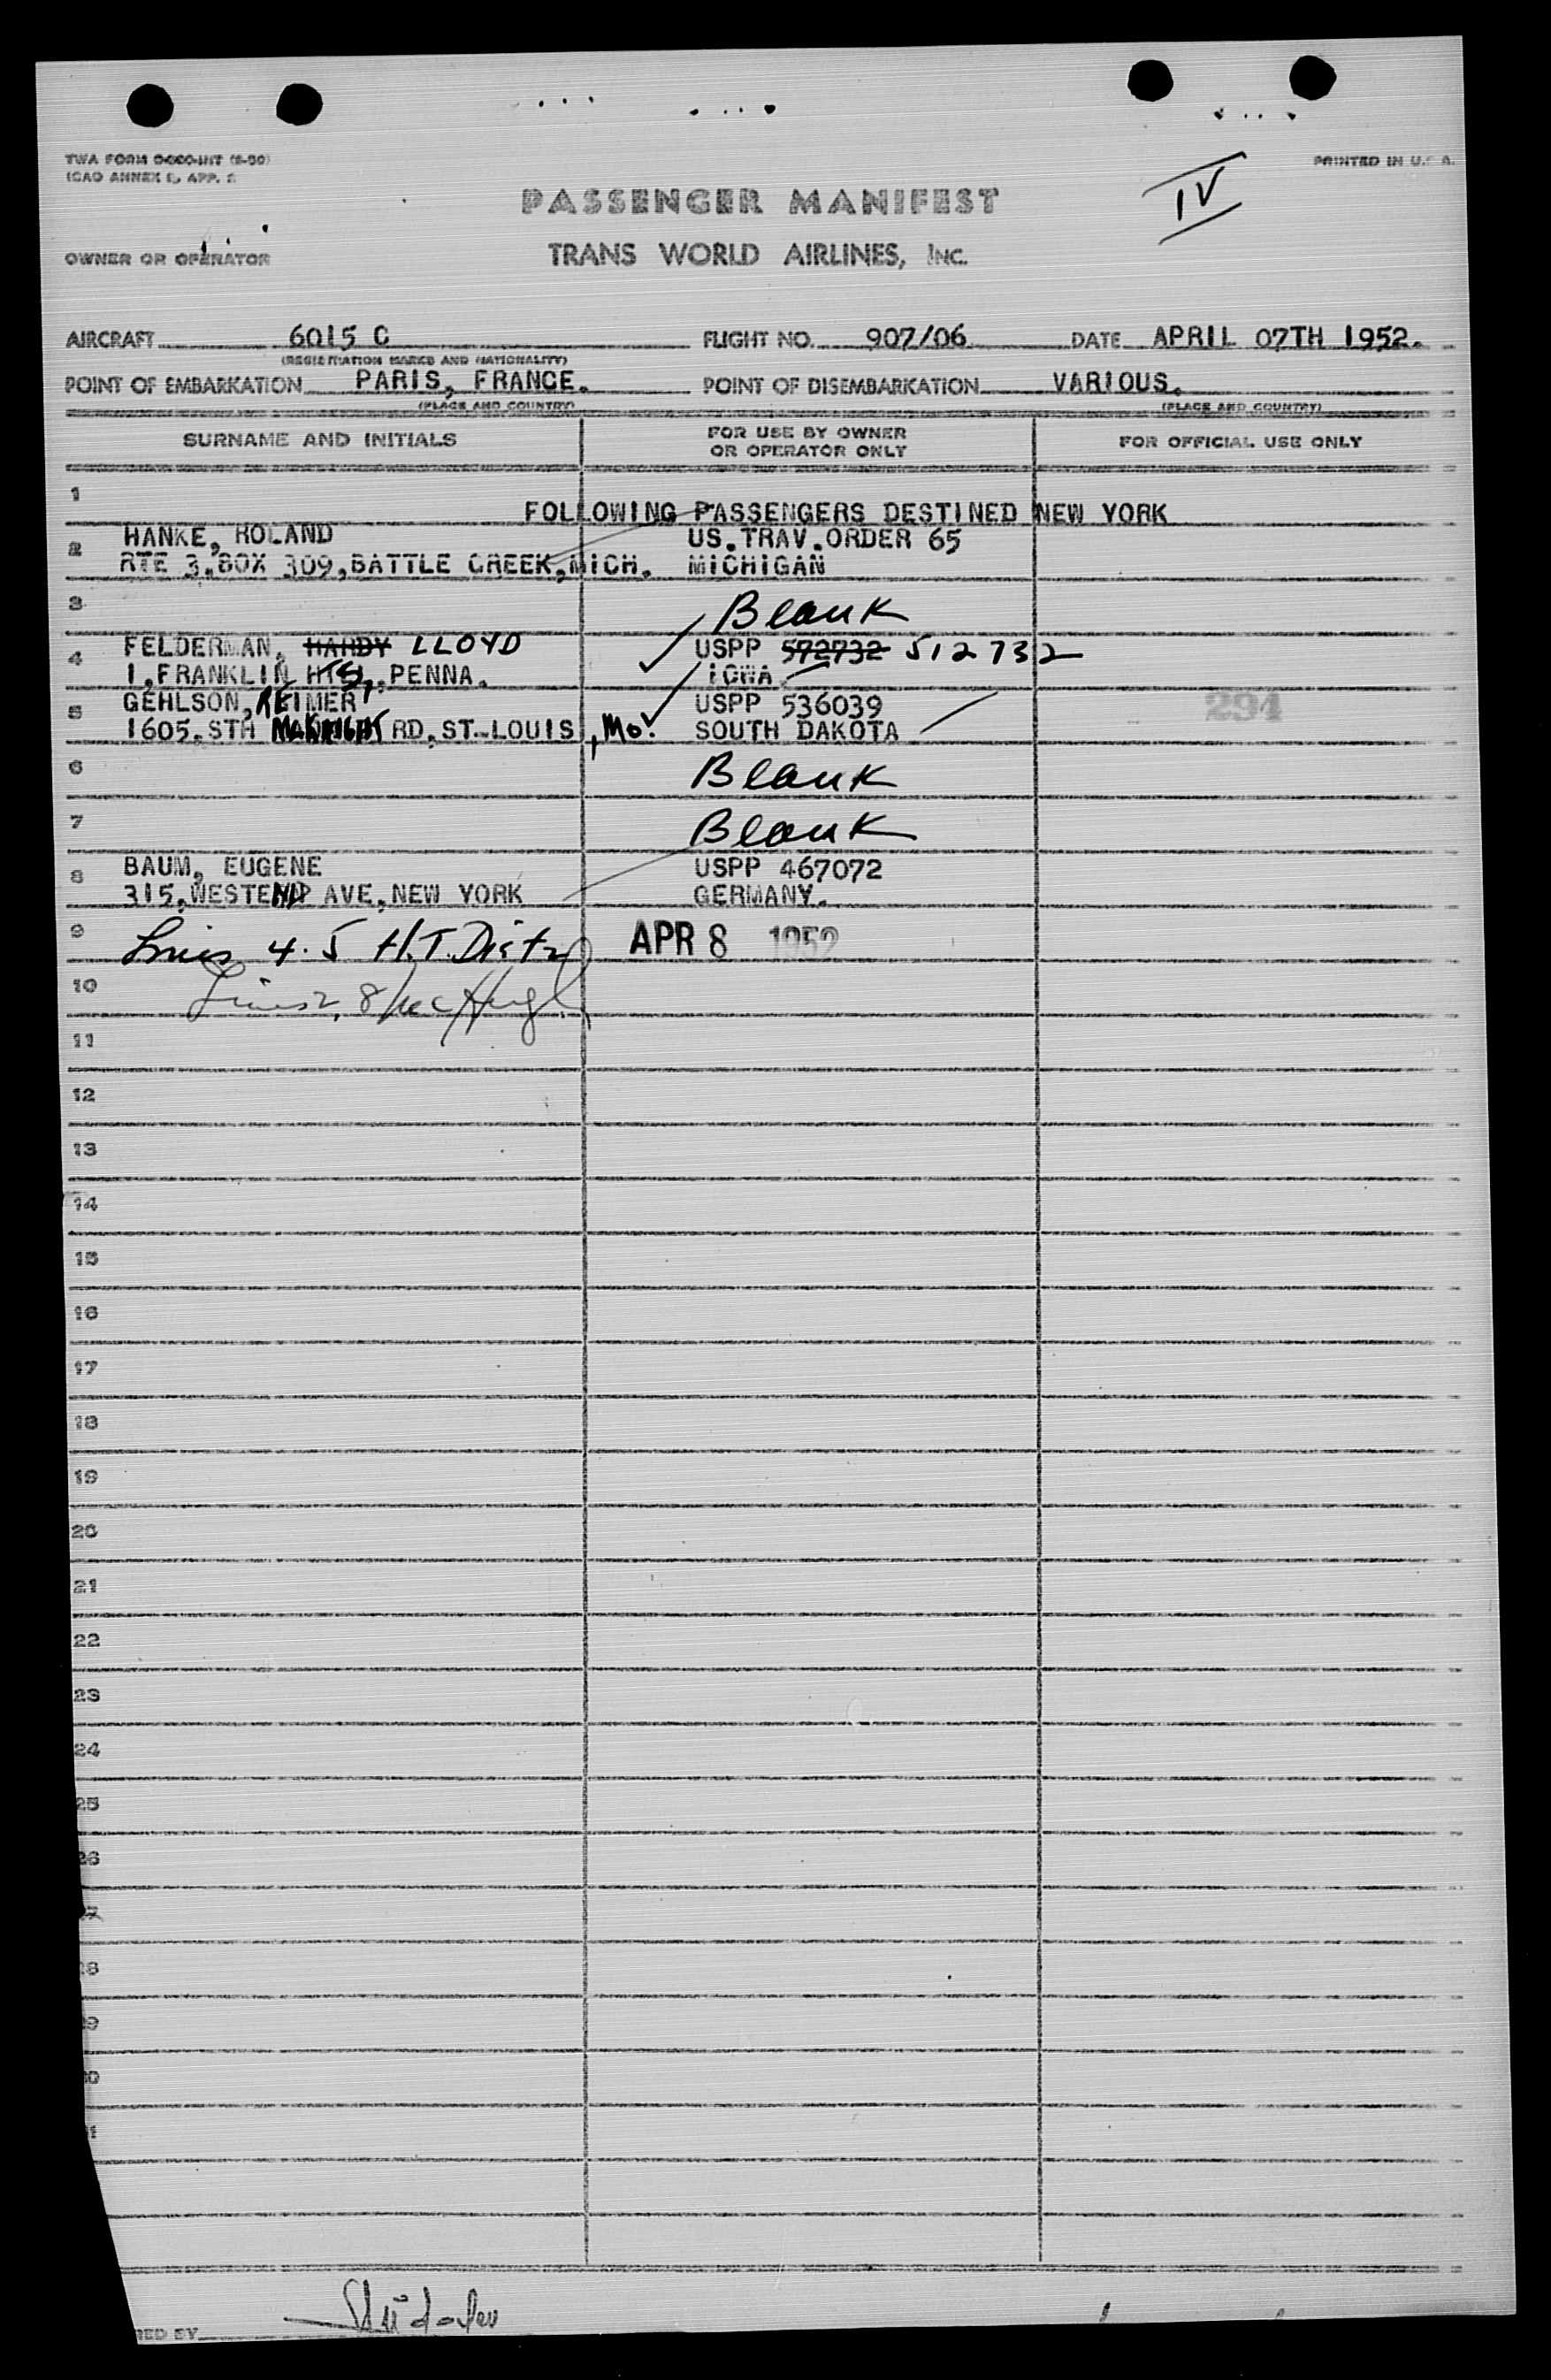 TWA FORM
ICAO ANNEX
PRINTED IN U.S.A.
IV
PASSENGER MANIFEST
OWNER OR OPERATOR
TRANS WORLD AIRLINES, INC.
AIRCRAFT 6015 C FLIGHT NO. 907/06 DATE APRIL 07TH 1952.
(REGISTRATION MARKS AND NATIONALITY)
POINT OF EMBARKATION PARIS, FRANCE. POINT OF DISEMBARKATION VARIOUS.
(PLACE AND COUNTRY) (PLACE AND COUNTRY)
SURNAME AND INITIALS FOR USE BY OWNER OR OPERATOR ONLY FOR OFFICIAL USE ONLY
1
FOLLOWING PASSENGERS DESTINED NEW YORK
2 HANKE, ROLAND US.TRAV.ORDER 65
RTE 3.BOX 309,BATTLE CREEK,MICH. MICHIGAN
3 Blank
4 FELDERMAN, HARDY LLOYD USPP 572732 512732
1,FRANKLIN HTS,.PENNA. IOWA
5 GEHLSON, REIMER USPP 536039
294
1605.STH McKNIGHT RD,ST.LOUIS, Mo. SOUTH DAKOTA
6 Blank
7 Blank
8 BAUM, EUGENE USPP 467072
315,WESTEND AVE,NEW YORK GERMANY.
9 Lines 4.5 H.T. APR 8 1952
10 Lines 2, 8
11
12
13
14
15
16
17
18
19
20
21
22
23
24
25
26
27
28
29
30
31